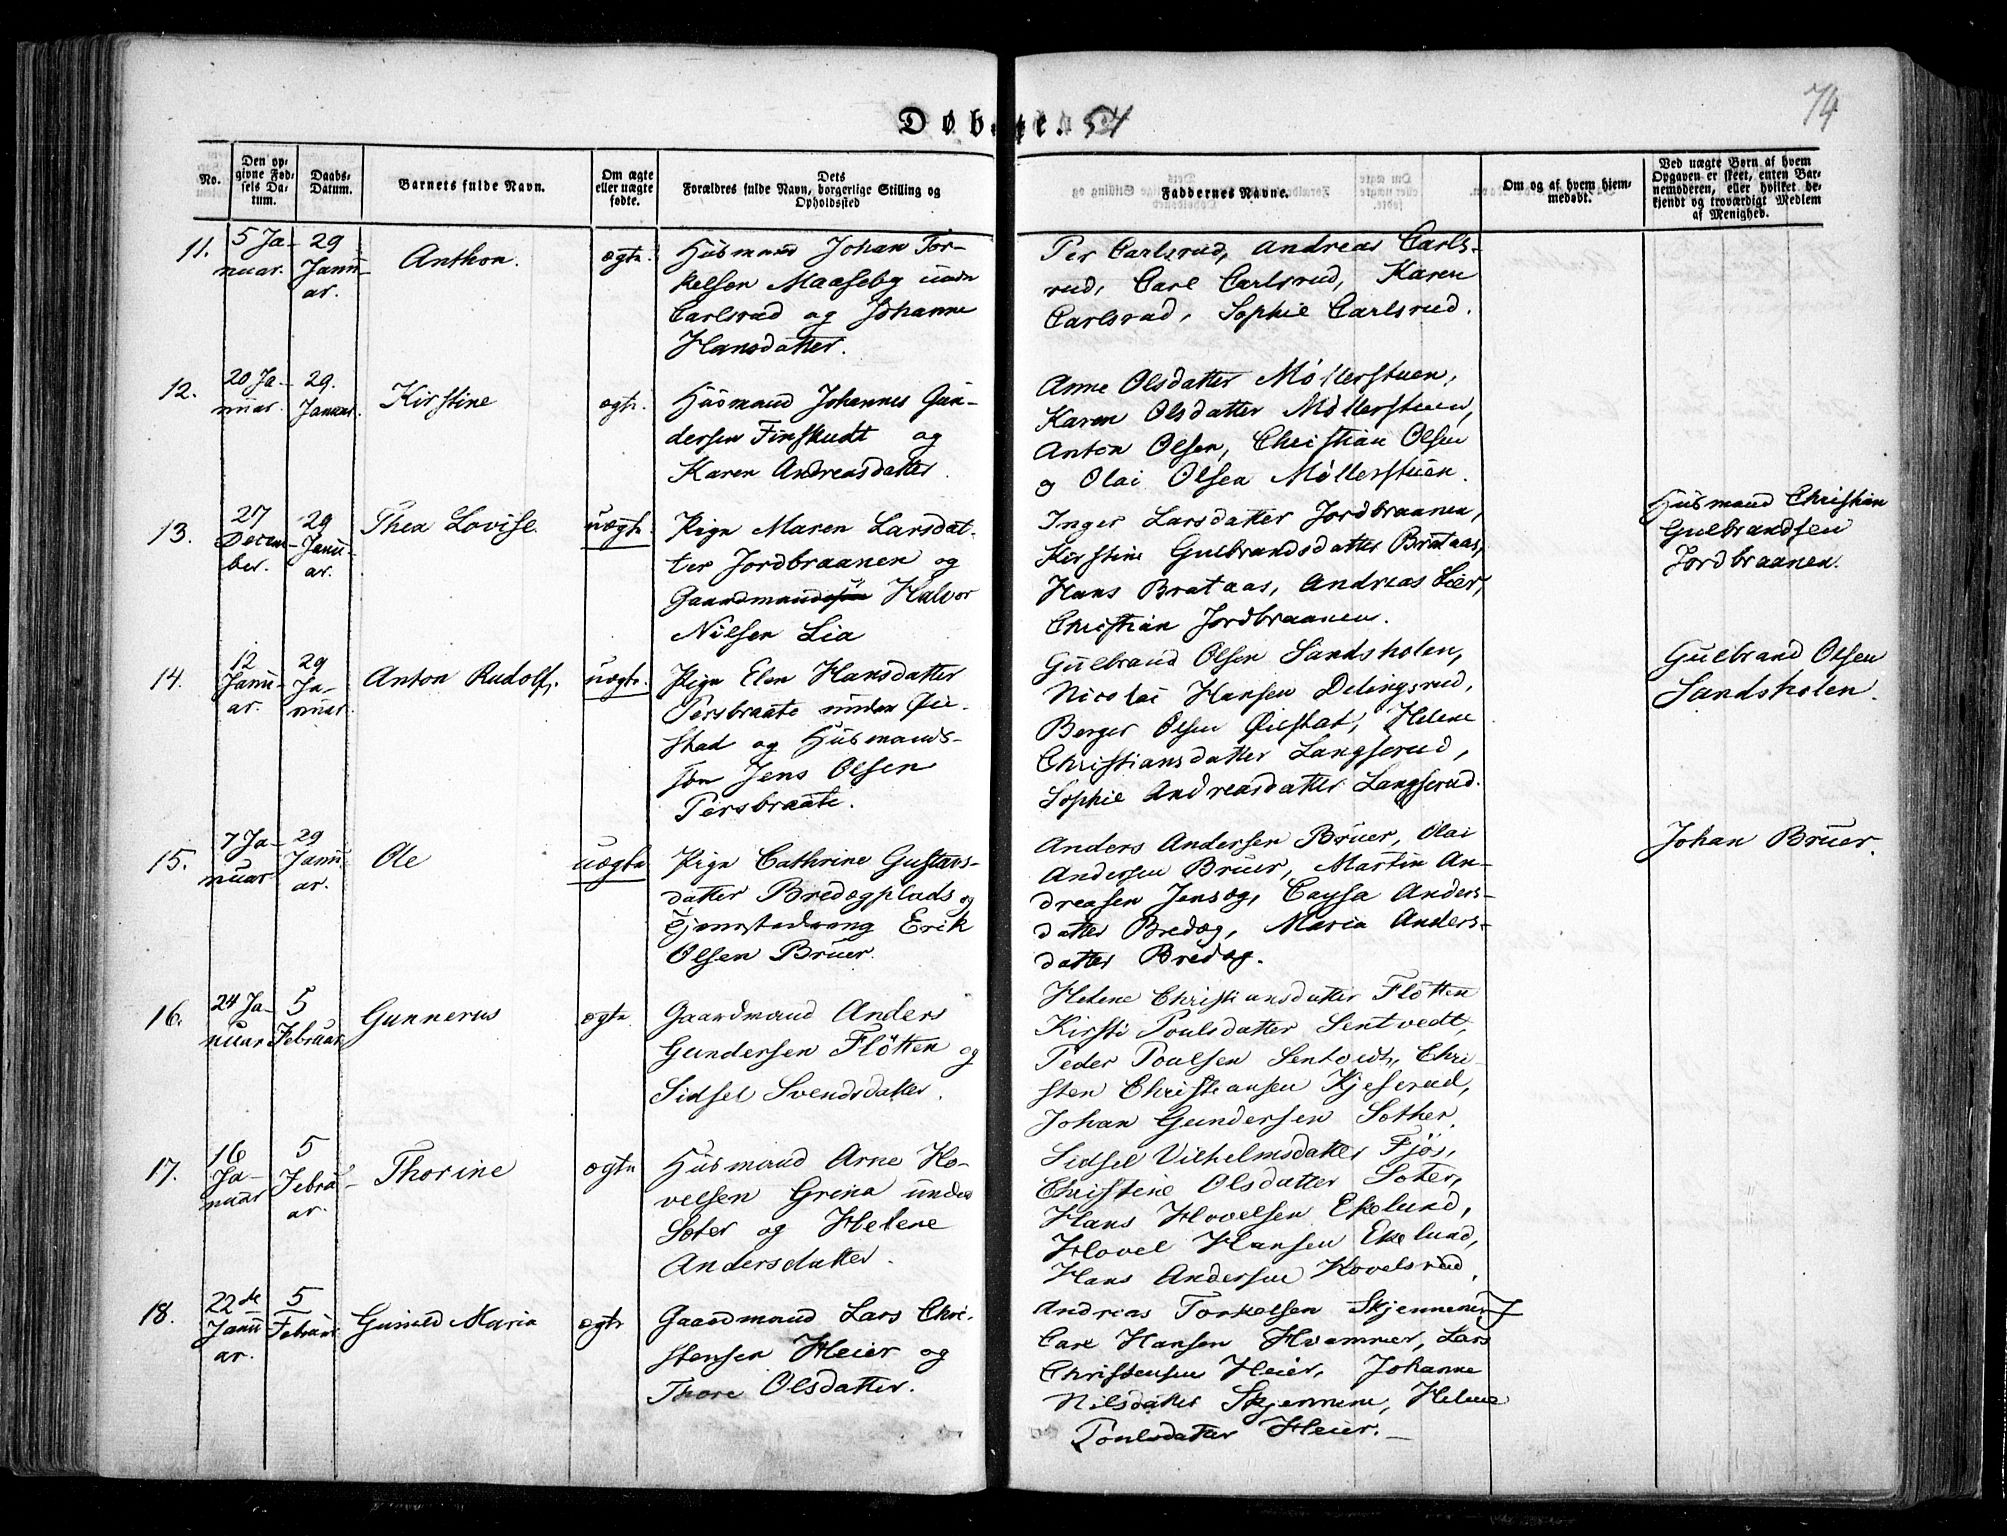 Døbte. 54
74
No.
Den op-
givne Fød-
sels Da-
tum.
Daabs-
Datum.
Barnets fulde Navn.
Om ægte
eller uægte
fødte.
Dets
Forældres fulde Navn, borgerlige Stilling og
Opholdssted
Faddernes Navne.
Om og af hvem hjem-
medøbt.
Ved uægte Børn af hvem
Opgaven er skeet, enten Bar-
nemoderen, eller hvilket be-
kjendt og troværdigt Medlem
af Menighed.
11.
5 Ja-
nuar.
29
Janu-
ar.
Anthon.
ægte.
Husmand Johan Tor-
kelsen Maaseby under
Carlsrud og Johanne
Hansdatter.
Per Carlsrud, Andreas Carls-
rud, Carl Carlsrud, Karen
Carlsrud, Sophie Carlsrud.
12.
20 Ja-
nuar.
29.
Januar.
Kirstine
ægte.
Husmand Johannes Gun-
dersen Finskudt og
Karen Andreasdatter.
Anne Olsdatter Møllerstuen,
Karen Olsdatter Møllerstuen,
Anton Olsen, Christian Olsen
og Olai Olsen Møllerstuen.
13.
27
Decem-
ber.
29
Janu-
ar.
Thea Lovise.
uægte.
Pige Maren Larsdat-
ter Jordbraanen og
Gaardmand Halvor
Nilsen Lia
Inger Larsdatter Jordbraanen,
Kirstine Gulbrandsdatter Brataas,
Hans Brataas, Andreas Lier,
Christian Jordbraanen.
Husmand Christian
Gulbrandsen
Jordbraanen.
14.
12
Janu-
ar.
29
Ja-
nuar.
Anton Rudolf.
uægte.
Pige Elen Hansdatter
Persbraate under Øie-
stad og Husmands-
søn Jens Olsen
Persbraate.
Gulbrand Olsen Sandsholen,
Nicolai Hansen Delingsrud,
Berger Olsen Øiestat, Helene
Christiansdatter Langserud,
Sophie Andreasdatter Langserud.
Gulbrand Olsen
Sandsholen.
15.
7 Ja-
nuar
29
Janu-
ar.
Ole
uægte
Pige Cathrine Gustavs-
datter Bredægplads og
Erik
Olsen Bruer.
Anders Andersen Bruer, Olai
Andersen Bruer, Martin An-
dreasen Jensæg, Caysa Anders-
datter Bredæg, Maria Anders-
datter Bredæg.
Johan Bruer.
16.
24 Ja-
nuar
5
Februar
Gunnerus
ægte
Gaardmand Anders
Gundersen Fløtten og
Sidsel Svendsdatter.
Helene Christiansdatter Fløtten
Kirsti Poulsdatter Sentvedt,
Peder Poulsen Sentvedt, Chri-
sten Christiansen Kjeserud,
Johan Gundersen Sother.
17.
16
Ja-
nuar
5
Febru-
ar.
Thorine
ægte
Husmand Arne Ho-
velsen Grina under
Soter og Helene
Andersdatter.
Sidsel Vilhelmsdatter Fjøs,
Christine Olsdatter Soter,
Hans Hovelsen Ekelund,
Hovel Hansen Ekelund,
Hans Andersen Hovelsrud.
18.
22de
Janu-
ar.
5
Februar
Gunild Maria
ægte
Gaardmand Lars Chri-
stensen Heier og
Thore Olsdatter.
Andreas Torkelsen Skjennene,
Carl Hansen Hvammer, Lars
Christensen Heier, Johanne
Nilsdatter Skjennene, Helene
Poulsdatter Heier.